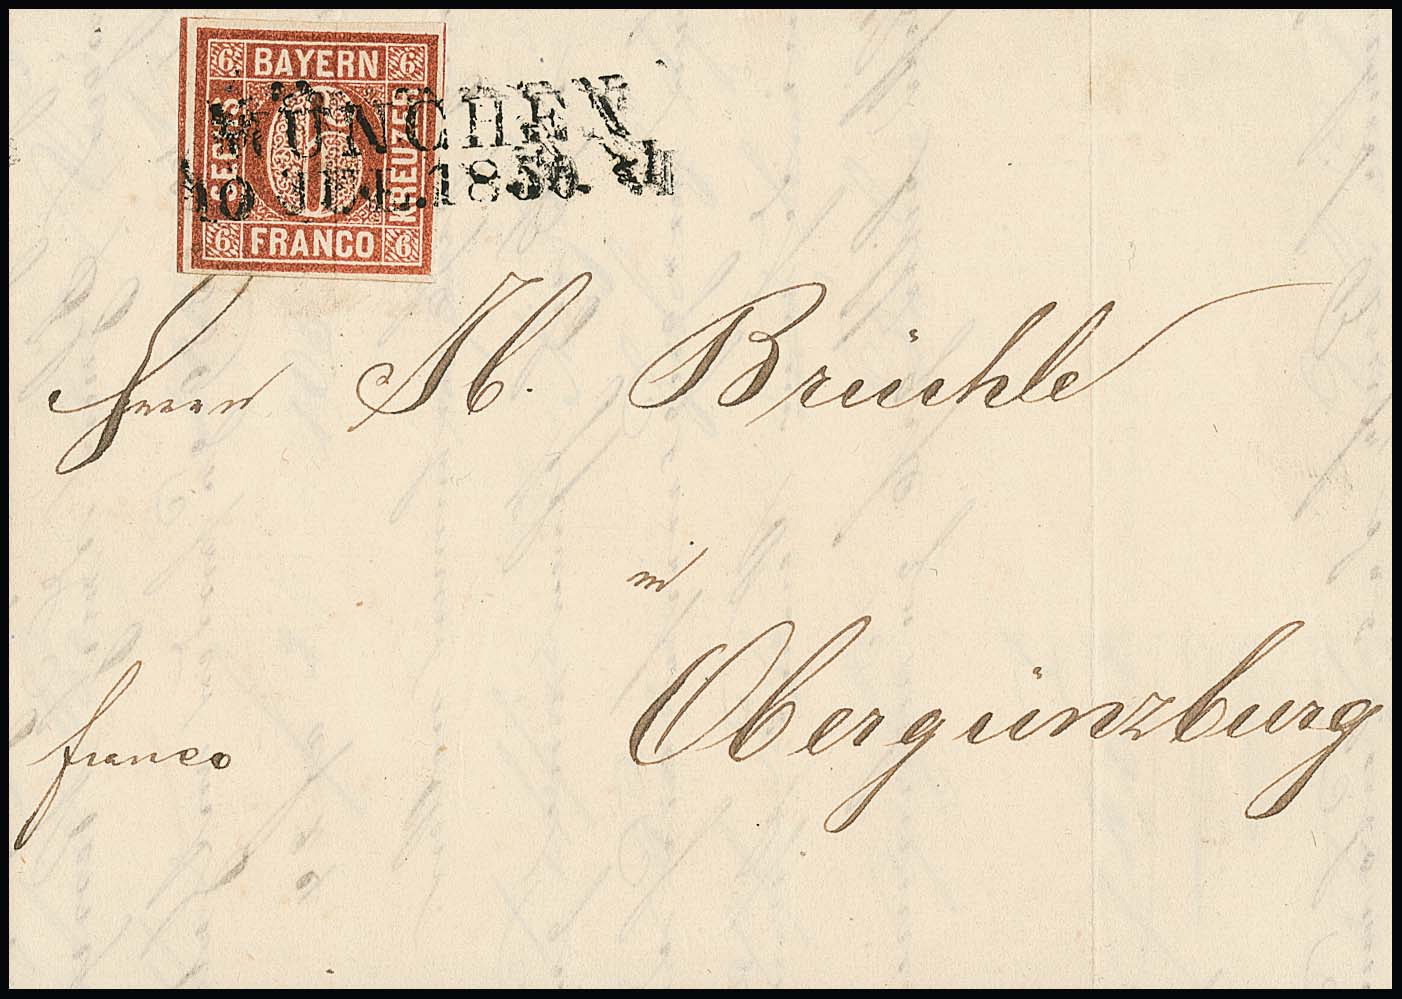 6 BAYERN 6
SECHS
6
KREUZER
6 FRANCO 6
MÜNCHEN
10 JUL. 1850.
Herrn Ab. Brüchle
in
Obergünzburg
franco